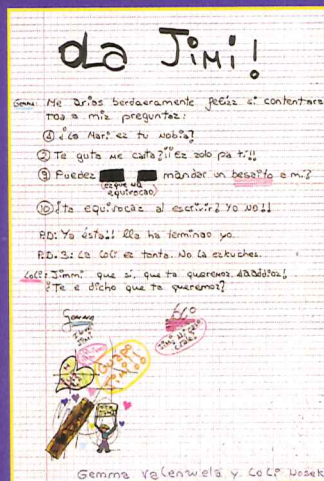 OLA JiMi!
Gemma: Me arias berdaeramente felizz si contentara
toa a miz preguntaz:
① ¿La Mari ez tu nobia?
② Te guta me cata? ¡¡Ez zolo pa ti!!
③ Puedez mandar un besaito a mi?
(ez que me equivocao)
⑩ ¿ta equivocaz al escrivir? Yo NO!!
P.D: Ya ésta!! lla ha terminao yo.
P.D. 3: La Coli ez tanta. No la ezkuches...
Coli: Jimmi que si, que ta queremoz. adaddios!
¿Te e dicho que ta queremoz?
Gemma
Guapo
Gemma Valenwela y Coli Nosek